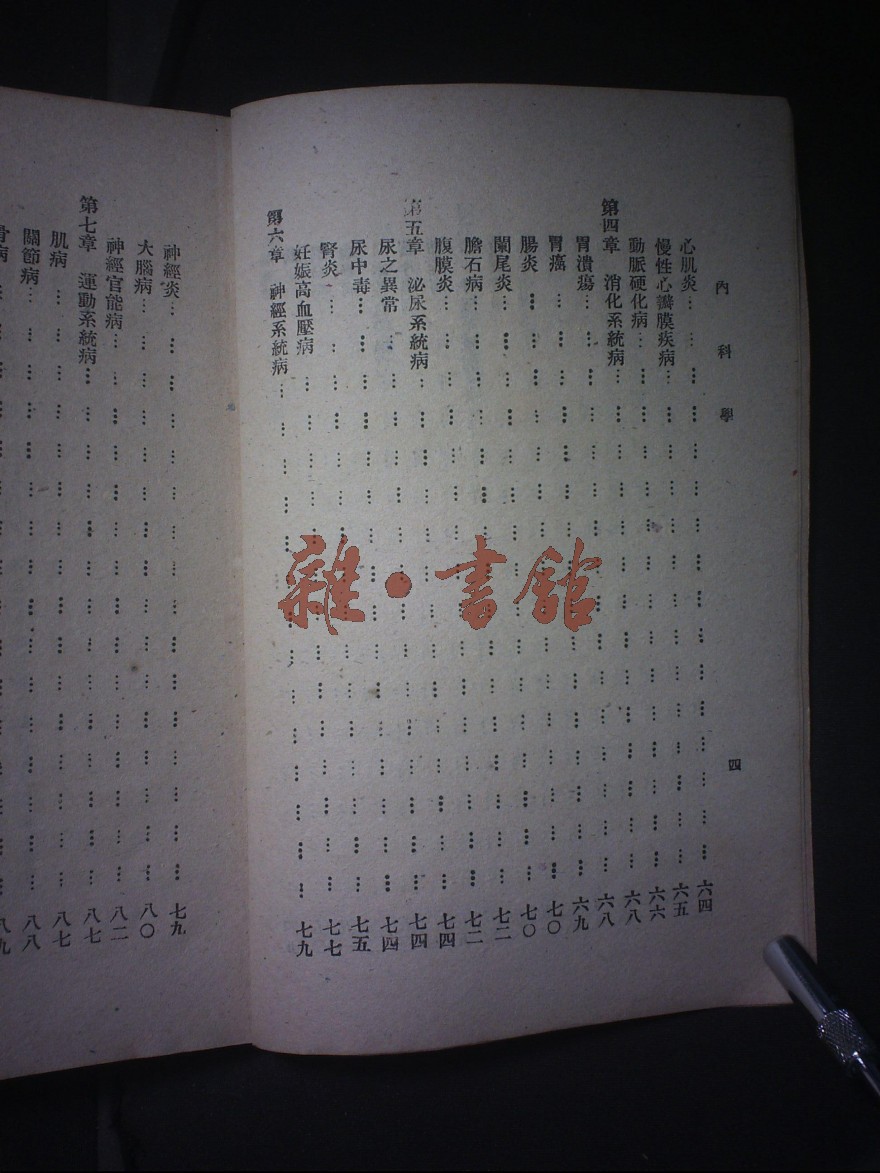 內科學 四
心肌炎……六四
慢性心瓣膜疾病……六五
動脈硬化病……六六
第四章 消化系統病……六八
胃潰瘍……六八
胃癌……六九
腸炎……七〇
闌尾炎……七〇
膽石病……七二
腹膜炎……七二
第五章 泌尿系統病……七四
尿之異常……七四
尿中毒……七四
腎炎……七五
妊娠高血壓病……七七
第六章 神經系統病……七九
神經炎……七九
大腦病……八〇
神經官能病……八二
第七章 運動系統病……八七
肌病……八七
關節病……八八
骨病……八九
雜·書館